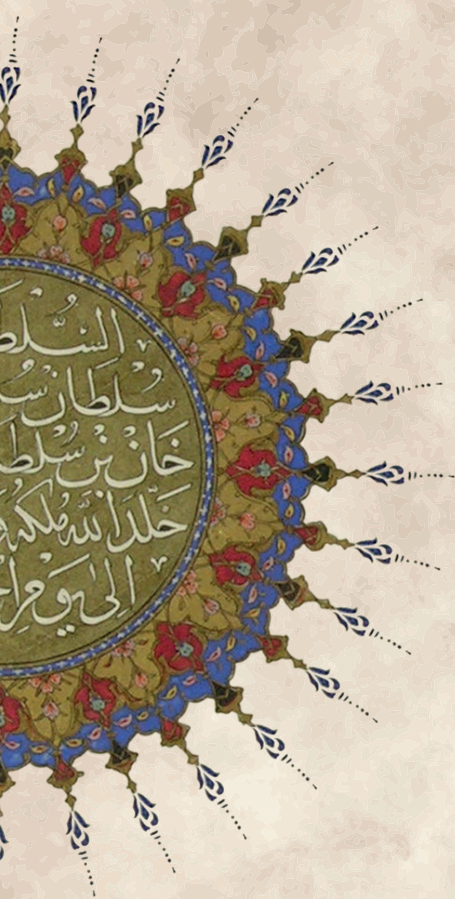 السُّلط
سُلطان سُ
خَان بن سُلطا
خَلّدَ الله مُلكه و
الیٰ يَوم